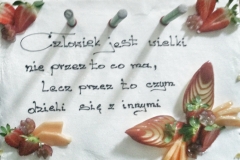 Człowiek jest wielki
nie przez to co ma,
Lecz przez to czym
dzieli się z innymi